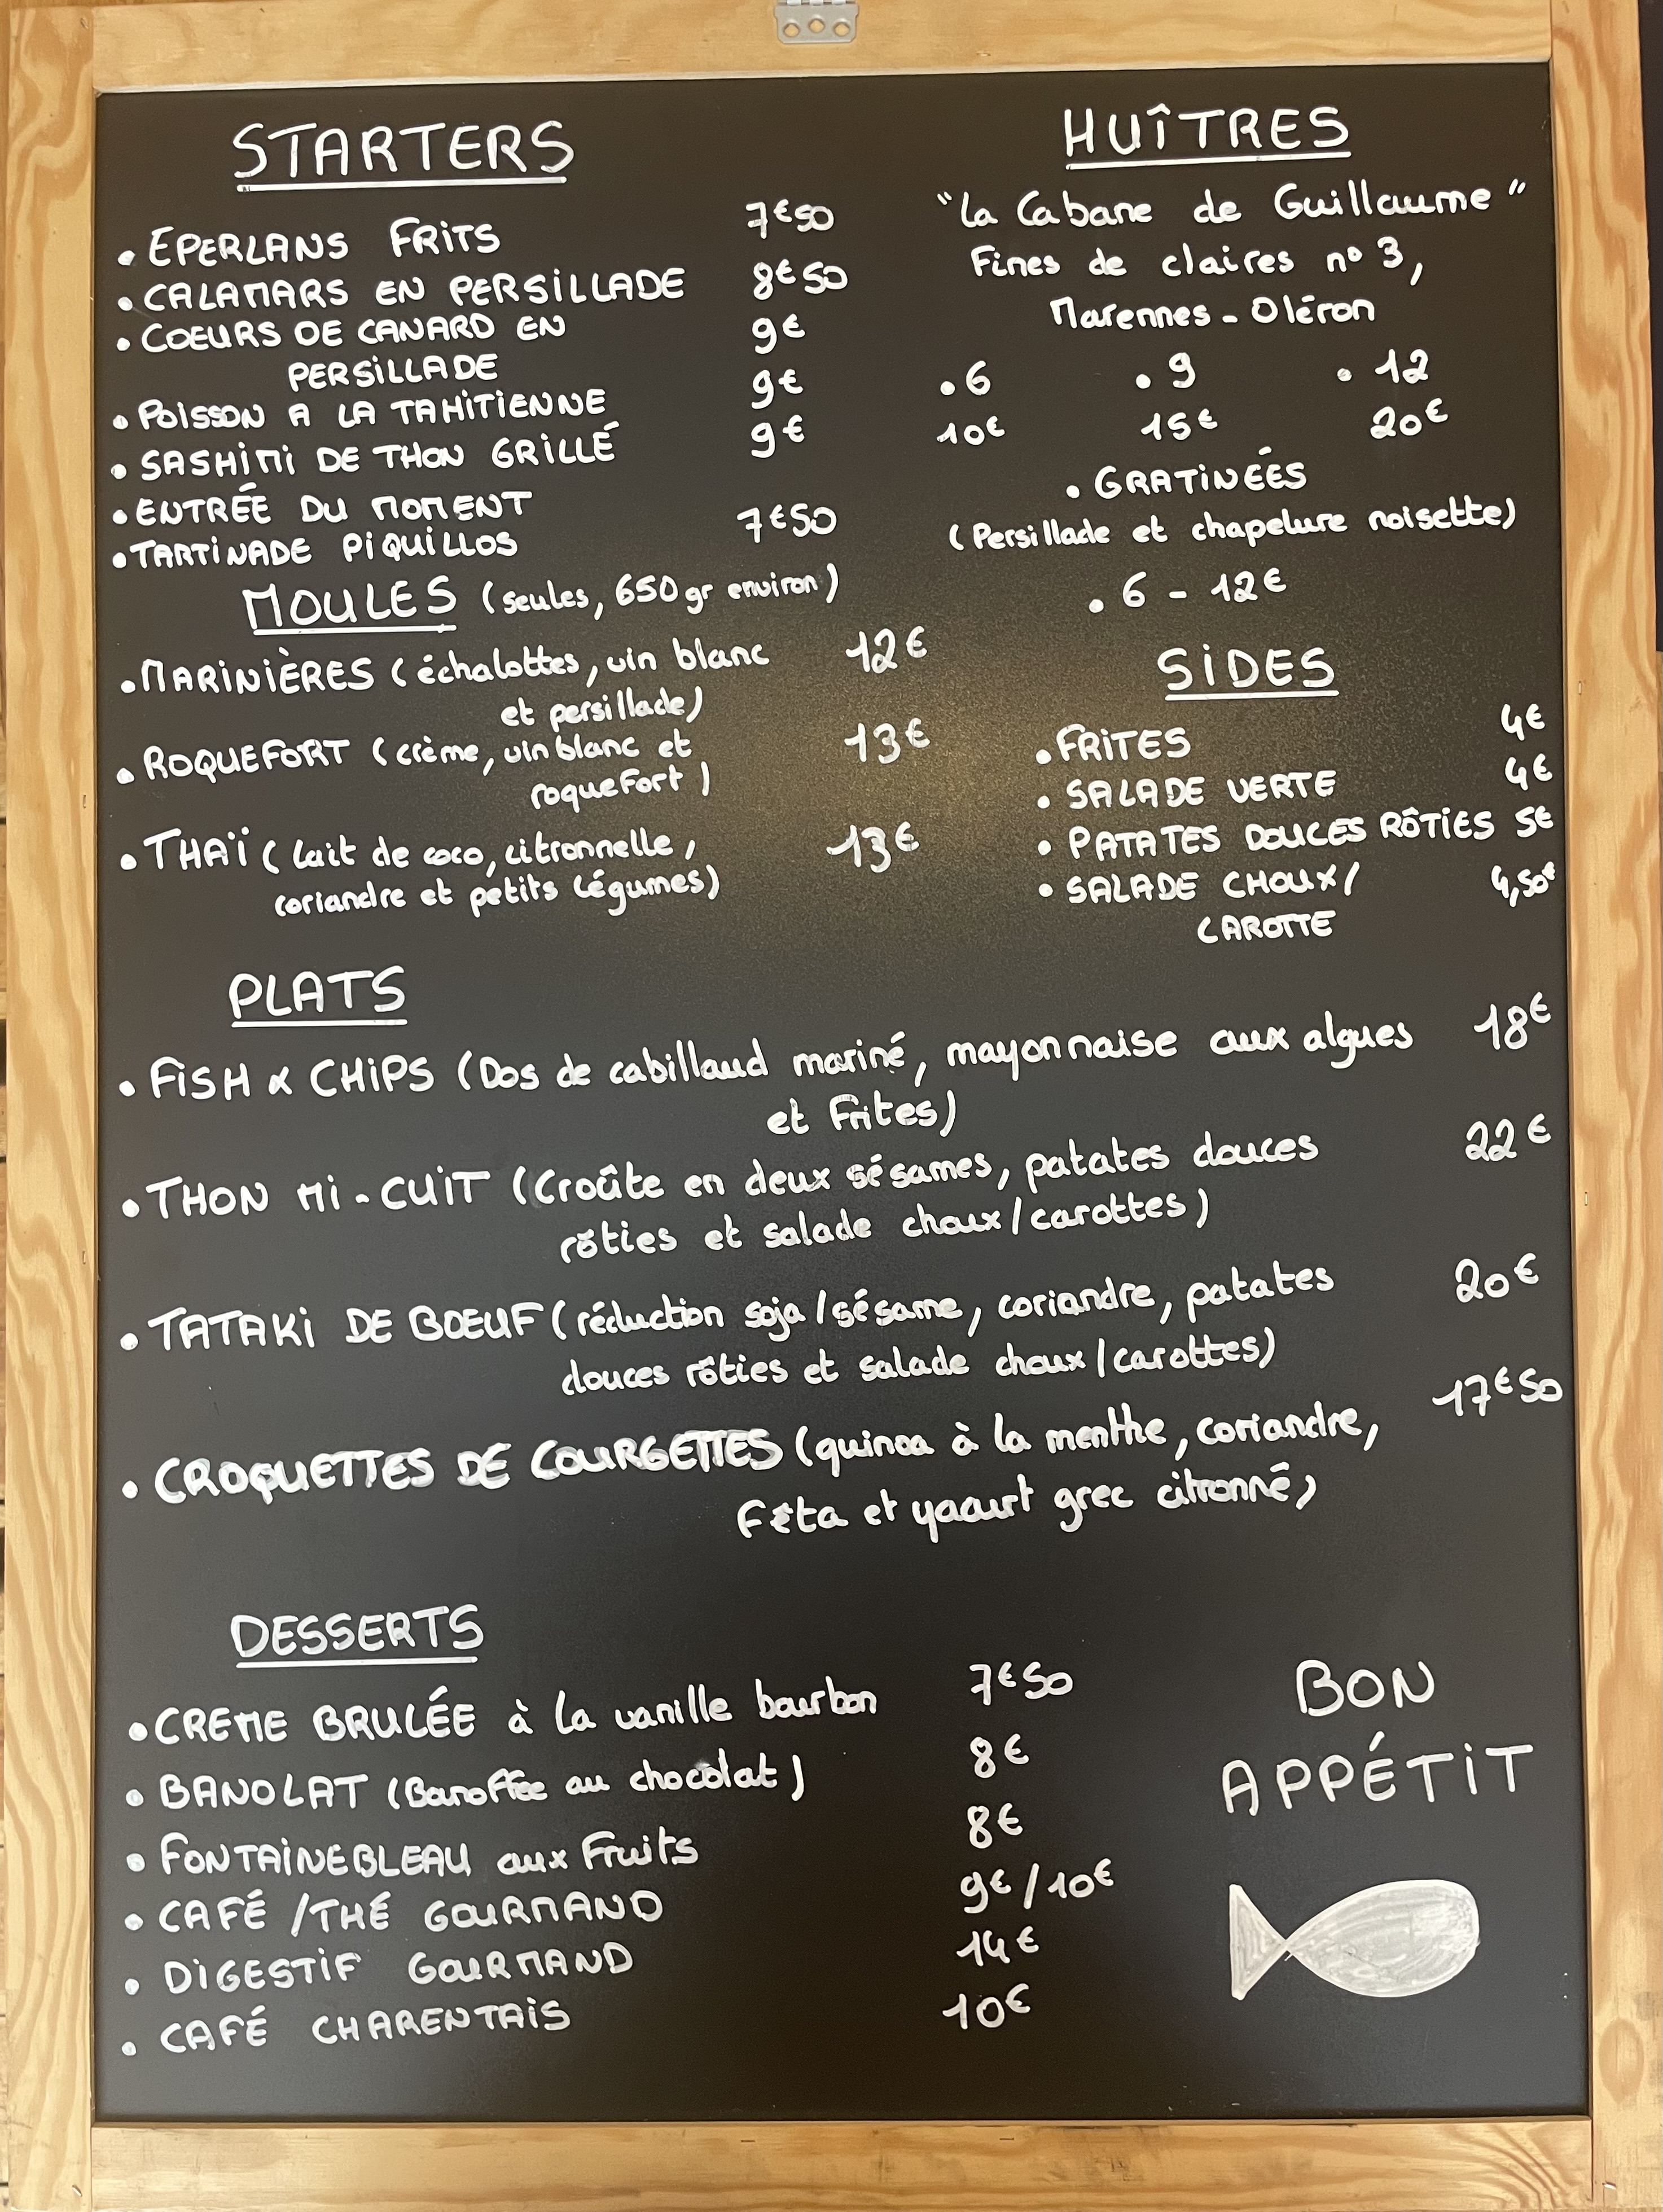 STARTERS
• EPERLANS FRITS 7€50
• CALAMARS EN PERSILLADE 8€50
• COEURS DE CANARD EN 9€
PERSILLADE
• POISSON A LA TAHITIENNE 9€
• SASHIMI DE THON GRILLÉ 9€
• ENTRÉE DU MOMENT
• TARTINADE PIQUILLOS 7€50
HUÎTRES
"La Cabane de Guillaume"
Fines de claires n° 3,
Marennes - Oléron
• 6 • 9 • 12
10€ 15€ 20€
• GRATINÉÉS
(Persillade et chapelure noisette)
• 6 - 12€
MOULES (seules, 650 gr environ)
• MARINIÈRES (échalottes, vin blanc 12€
et persillade)
• ROQUEFORT (crème, vin blanc et 13€
roquefort)
• THAÏ (lait de coco, citronnelle, 13€
coriandre et petits légumes)
SIDES
• FRITES 4€
• SALADE VERTE 4€
• PATATES DOUCES RÔTIES 5€
• SALADE CHOUX/ 4,50€
CAROTTE
PLATS
• FISH & CHIPS (Dos de cabillaud mariné, mayonnaise aux algues 18€
et Frites)
• THON MI-CUIT (Croûte en deux sésames, patates douces 22€
rôties et salade choux/carottes)
• TATAKI DE BOEUF (réduction soja/sésame, coriandre, patates 20€
douces rôties et salade choux/carottes)
• CROQUETTES DE COURGETTES (quinoa à la menthe, coriandre, 17€50
Fêta et yaourt grec citronné)
DESSERTS
• CREME BRULÉE à la vanille bourbon 7€50
• BANOLAT (Banoffee au chocolat) 8€
• FONTAINEBLEAU aux Fruits 8€
• CAFÉ /THÉ GOURMAND 9€/10€
• DIGESTIF GOURMAND 14€
• CAFÉ CHARENTAIS 10€
BON
APPÉTIT